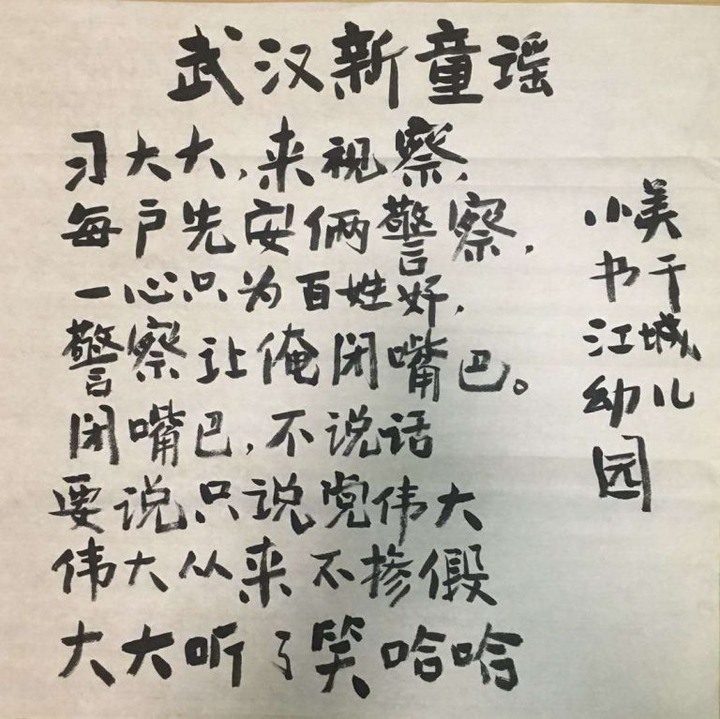 武汉新童谣
习大大,来视察,
每户先安俩警察,
一心只为百姓好,
警察让俺闭嘴巴。
闭嘴巴,不说话
要说只说党伟大
伟大从来不掺假
大大听了笑哈哈
小美
书于
江城
幼儿
园